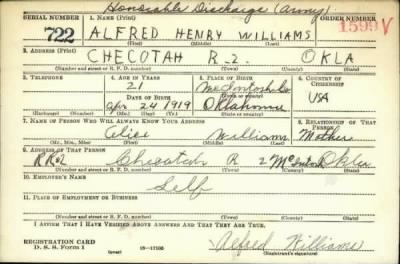 Honorable Discharge (Army)
SERIAL NUMBER 1. NAME (Print) ORDER NUMBER
722 ALFRED HENRY WILLIAMS 1599 V
(First) (Middle) (Last)
2. ADDRESS (Print)
CHECOTAH R-2. OKLA
(Number and street or R. F. D. number) (Town) (County) (State)
3. TELEPHONE 4. AGE IN YEARS 5. PLACE OF BIRTH 6. COUNTRY OF CITIZENSHIP
21 McIntosh Co
DATE OF BIRTH (Town or county)
Apr 24 1919 Oklahoma USA
(Exchange) (Number) (Mo.) (Day) (Yr.) (State or country)
7. NAME OF PERSON WHO WILL ALWAYS KNOW YOUR ADDRESS 8. RELATIONSHIP OF THAT PERSON
Williams Mother
(Mr., Mrs., Miss) (First) (Middle) (Last)
9. ADDRESS OF THAT PERSON
RR2 Checotah R 2 McIntosh Okla
(Number and street or R. F. D. number) (Town) (County) (State)
10. EMPLOYER'S NAME
Self
11. PLACE OF EMPLOYMENT OR BUSINESS
(Number and street or R. F. D. number) (Town) (County) (State)
I AFFIRM THAT I HAVE VERIFIED ABOVE ANSWERS AND THAT THEY ARE TRUE.
REGISTRATION CARD
D. S. S. Form 1 16—17105 Alfred Williams
(Registrant's signature)